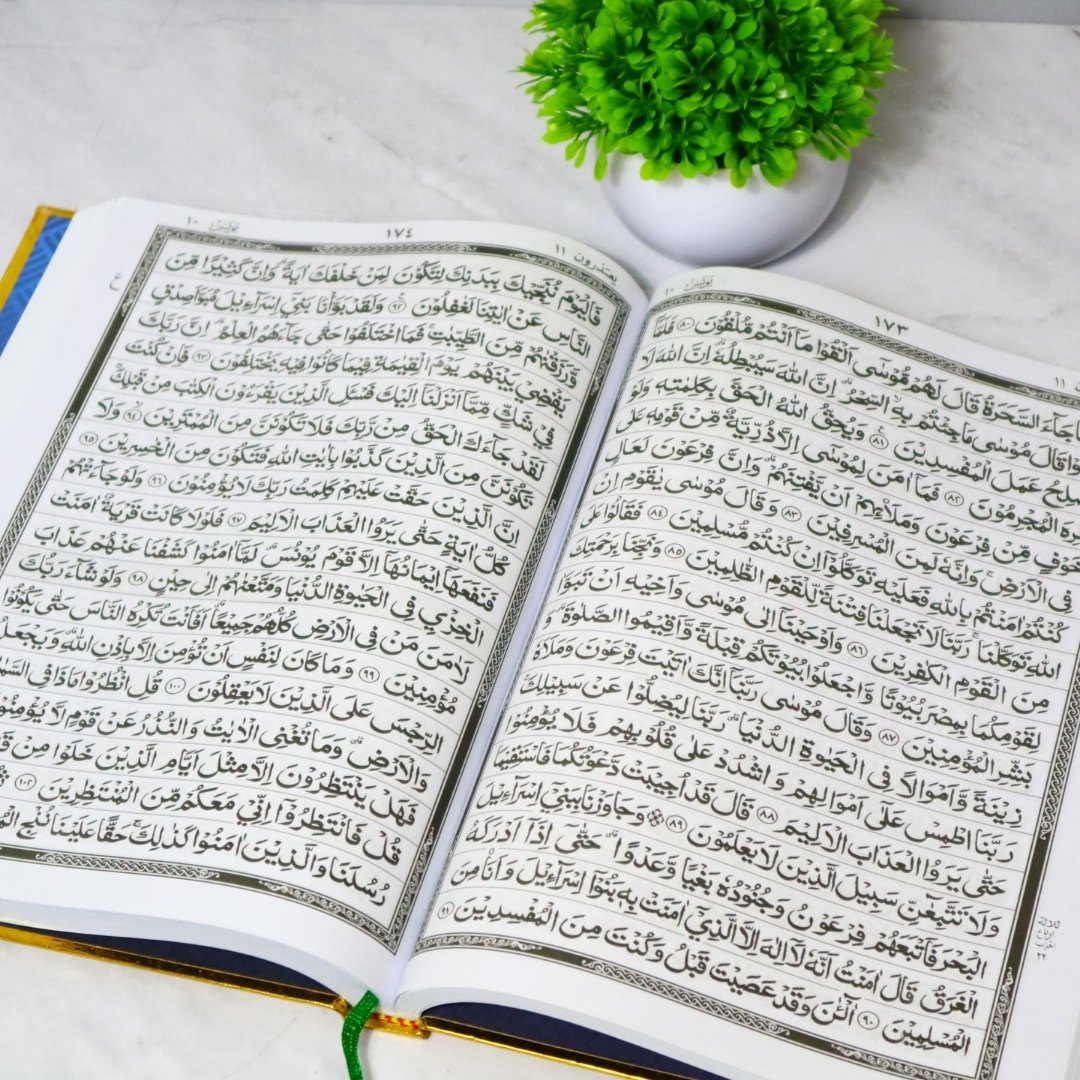 يونس ١٠
١٧٣
١١
جَآءَ السَّحَرَةُ قَالَ لَهُمْ مُّوْسٰٓى اَلْقُوْا مَآ اَنْتُمْ مُّلْقُوْنَ ٨٠ فَلَمَّآ
قَالَ مُوْسٰى مَا جِئْتُمْ بِهِ السِّحْرُ اِنَّ اللّٰهَ سَيُبْطِلُهٗ اِنَّ اللّٰهَ لَا
عَمَلَ الْمُفْسِدِيْنَ ٨١ وَيُحِقُّ اللّٰهُ الْحَقَّ بِكَلِمٰتِهٖ وَلَوْ
الْمُجْرِمُوْنَ ٨٢ فَمَآ اٰمَنَ لِمُوْسٰٓى اِلَّا ذُرِّيَّةٌ مِّنْ قَوْمِهٖ عَلٰى
خَوْفٍ مِّنْ فِرْعَوْنَ وَمَلَا۟ئِهِمْ اَنْ يَّفْتِنَهُمْ وَاِنَّ فِرْعَوْنَ لَعَالٍ
فِى الْاَرْضِ وَاِنَّهٗ لَمِنَ الْمُسْرِفِيْنَ ٨٣ وَقَالَ مُوْسٰى يٰقَوْمِ اِنْ
كُنْتُمْ اٰمَنْتُمْ بِاللّٰهِ فَعَلَيْهِ تَوَكَّلُوْٓا اِنْ كُنْتُمْ مُّسْلِمِيْنَ ٨٤ فَقَالُوْا عَلَى
اللّٰهِ تَوَكَّلْنَا رَبَّنَا لَا تَجْعَلْنَا فِتْنَةً لِّلْقَوْمِ الظّٰلِمِيْنَ ٨٥ وَنَجِّنَا بِرَحْمَتِكَ
مِنَ الْقَوْمِ الْكٰفِرِيْنَ ٨٦ وَاَوْحَيْنَآ اِلٰى مُوْسٰى وَاَخِيْهِ اَنْ تَبَوَّاٰ
لِقَوْمِكُمَا بِمِصْرَ بُيُوْتًا وَّاجْعَلُوْا بُيُوْتَكُمْ قِبْلَةً وَّاَقِيْمُوا الصَّلٰوةَ وَ
بَشِّرِ الْمُؤْمِنِيْنَ ٨٧ وَقَالَ مُوْسٰى رَبَّنَآ اِنَّكَ اٰتَيْتَ فِرْعَوْنَ وَمَلَاَهٗ
زِيْنَةً وَّاَمْوَالًا فِى الْحَيٰوةِ الدُّنْيَا رَبَّنَا لِيُضِلُّوْا عَنْ سَبِيْلِكَ
رَبَّنَا اطْمِسْ عَلٰٓى اَمْوَالِهِمْ وَاشْدُدْ عَلٰى قُلُوْبِهِمْ فَلَا يُؤْمِنُوْا
حَتّٰى يَرَوُا الْعَذَابَ الْاَلِيْمَ ٨٨ قَالَ قَدْ اُجِيْبَتْ دَّعْوَتُكُمَا فَاسْتَقِيْمَا
وَلَا تَتَّبِعٰٓنِّ سَبِيْلَ الَّذِيْنَ لَا يَعْلَمُوْنَ ٨٩ وَجَاوَزْنَا بِبَنِيْٓ اِسْرَآءِيْلَ
الْبَحْرَ فَاَتْبَعَهُمْ فِرْعَوْنُ وَجُنُوْدُهٗ بَغْيًا وَّعَدْوًا حَتّٰىٓ اِذَآ اَدْرَكَهُ
الْغَرَقُ قَالَ اٰمَنْتُ اَنَّهٗ لَآ اِلٰهَ اِلَّا الَّذِيْٓ اٰمَنَتْ بِهٖ بَنُوْٓا اِسْرَآءِيْلَ وَاَنَا مِنَ
الْمُسْلِمِيْنَ ٩٠ آٰلْـٰٔنَ وَقَدْ عَصَيْتَ قَبْلُ وَكُنْتَ مِنَ الْمُفْسِدِيْنَ ٩١
ثلاثة
ارباع
الحزب
٢٢
يعتذرون ١١
١٧٤
يونس ١٠
ع
فَالْيَوْمَ نُنَجِّيْكَ بِبَدَنِكَ لِتَكُوْنَ لِمَنْ خَلْفَكَ اٰيَةً وَاِنَّ كَثِيْرًا مِّنَ
النَّاسِ عَنْ اٰيٰتِنَا لَغٰفِلُوْنَ ٩٢ وَلَقَدْ بَوَّأْنَا بَنِيْٓ اِسْرَآءِيْلَ مُبَوَّاَ صِدْقٍ
وَّرَزَقْنٰهُمْ مِّنَ الطَّيِّبٰتِ فَمَا اخْتَلَفُوْا حَتّٰى جَآءَهُمُ الْعِلْمُ اِنَّ رَبَّكَ
يَقْضِيْ بَيْنَهُمْ يَوْمَ الْقِيٰمَةِ فِيْمَا كَانُوْا فِيْهِ يَخْتَلِفُوْنَ ٩٣ فَاِنْ كُنْتَ
فِيْ شَكٍّ مِّمَّآ اَنْزَلْنَآ اِلَيْكَ فَسْـَٔلِ الَّذِيْنَ يَقْرَءُوْنَ الْكِتٰبَ مِنْ قَبْلِكَ
لَقَدْ جَآءَكَ الْحَقُّ مِنْ رَّبِّكَ فَلَا تَكُوْنَنَّ مِنَ الْمُمْتَرِيْنَ ٩٤ وَلَا
تَكُوْنَنَّ مِنَ الَّذِيْنَ كَذَّبُوْا بِاٰيٰتِ اللّٰهِ فَتَكُوْنَ مِنَ الْخٰسِرِيْنَ ٩٥
اِنَّ الَّذِيْنَ حَقَّتْ عَلَيْهِمْ كَلِمَتُ رَبِّكَ لَا يُؤْمِنُوْنَ ٩٦ وَلَوْ جَآءَتْهُمْ
كُلُّ اٰيَةٍ حَتّٰى يَرَوُا الْعَذَابَ الْاَلِيْمَ ٩٧ فَلَوْلَا كَانَتْ قَرْيَةٌ اٰمَنَتْ
فَنَفَعَهَآ اِيْمَانُهَآ اِلَّا قَوْمَ يُوْنُسَ لَمَّآ اٰمَنُوْا كَشَفْنَا عَنْهُمْ عَذَابَ
الْخِزْيِ فِى الْحَيٰوةِ الدُّنْيَا وَمَتَّعْنٰهُمْ اِلٰى حِيْنٍ ٩٨ وَلَوْ شَآءَ رَبُّكَ
لَاٰمَنَ مَنْ فِى الْاَرْضِ كُلُّهُمْ جَمِيْعًا اَفَاَنْتَ تُكْرِهُ النَّاسَ حَتّٰى يَكُوْنُوْا
مُؤْمِنِيْنَ ٩٩ وَمَا كَانَ لِنَفْسٍ اَنْ تُؤْمِنَ اِلَّا بِاِذْنِ اللّٰهِ وَيَجْعَلُ
الرِّجْسَ عَلَى الَّذِيْنَ لَا يَعْقِلُوْنَ ١٠٠ قُلِ انْظُرُوْا مَاذَا فِى
وَالْاَرْضِ وَمَا تُغْنِى الْاٰيٰتُ وَالنُّذُرُ عَنْ قَوْمٍ لَّا يُؤْمِنُوْنَ
فَهَلْ يَنْتَظِرُوْنَ اِلَّا مِثْلَ اَيَّامِ الَّذِيْنَ خَلَوْا مِنْ
قُلْ فَانْتَظِرُوْٓا اِنِّيْ مَعَكُمْ مِّنَ الْمُنْتَظِرِيْنَ ١٠٢
رُسُلَنَا وَالَّذِيْنَ اٰمَنُوْا كَذٰلِكَ حَقًّا عَلَيْنَا نُنْجِ